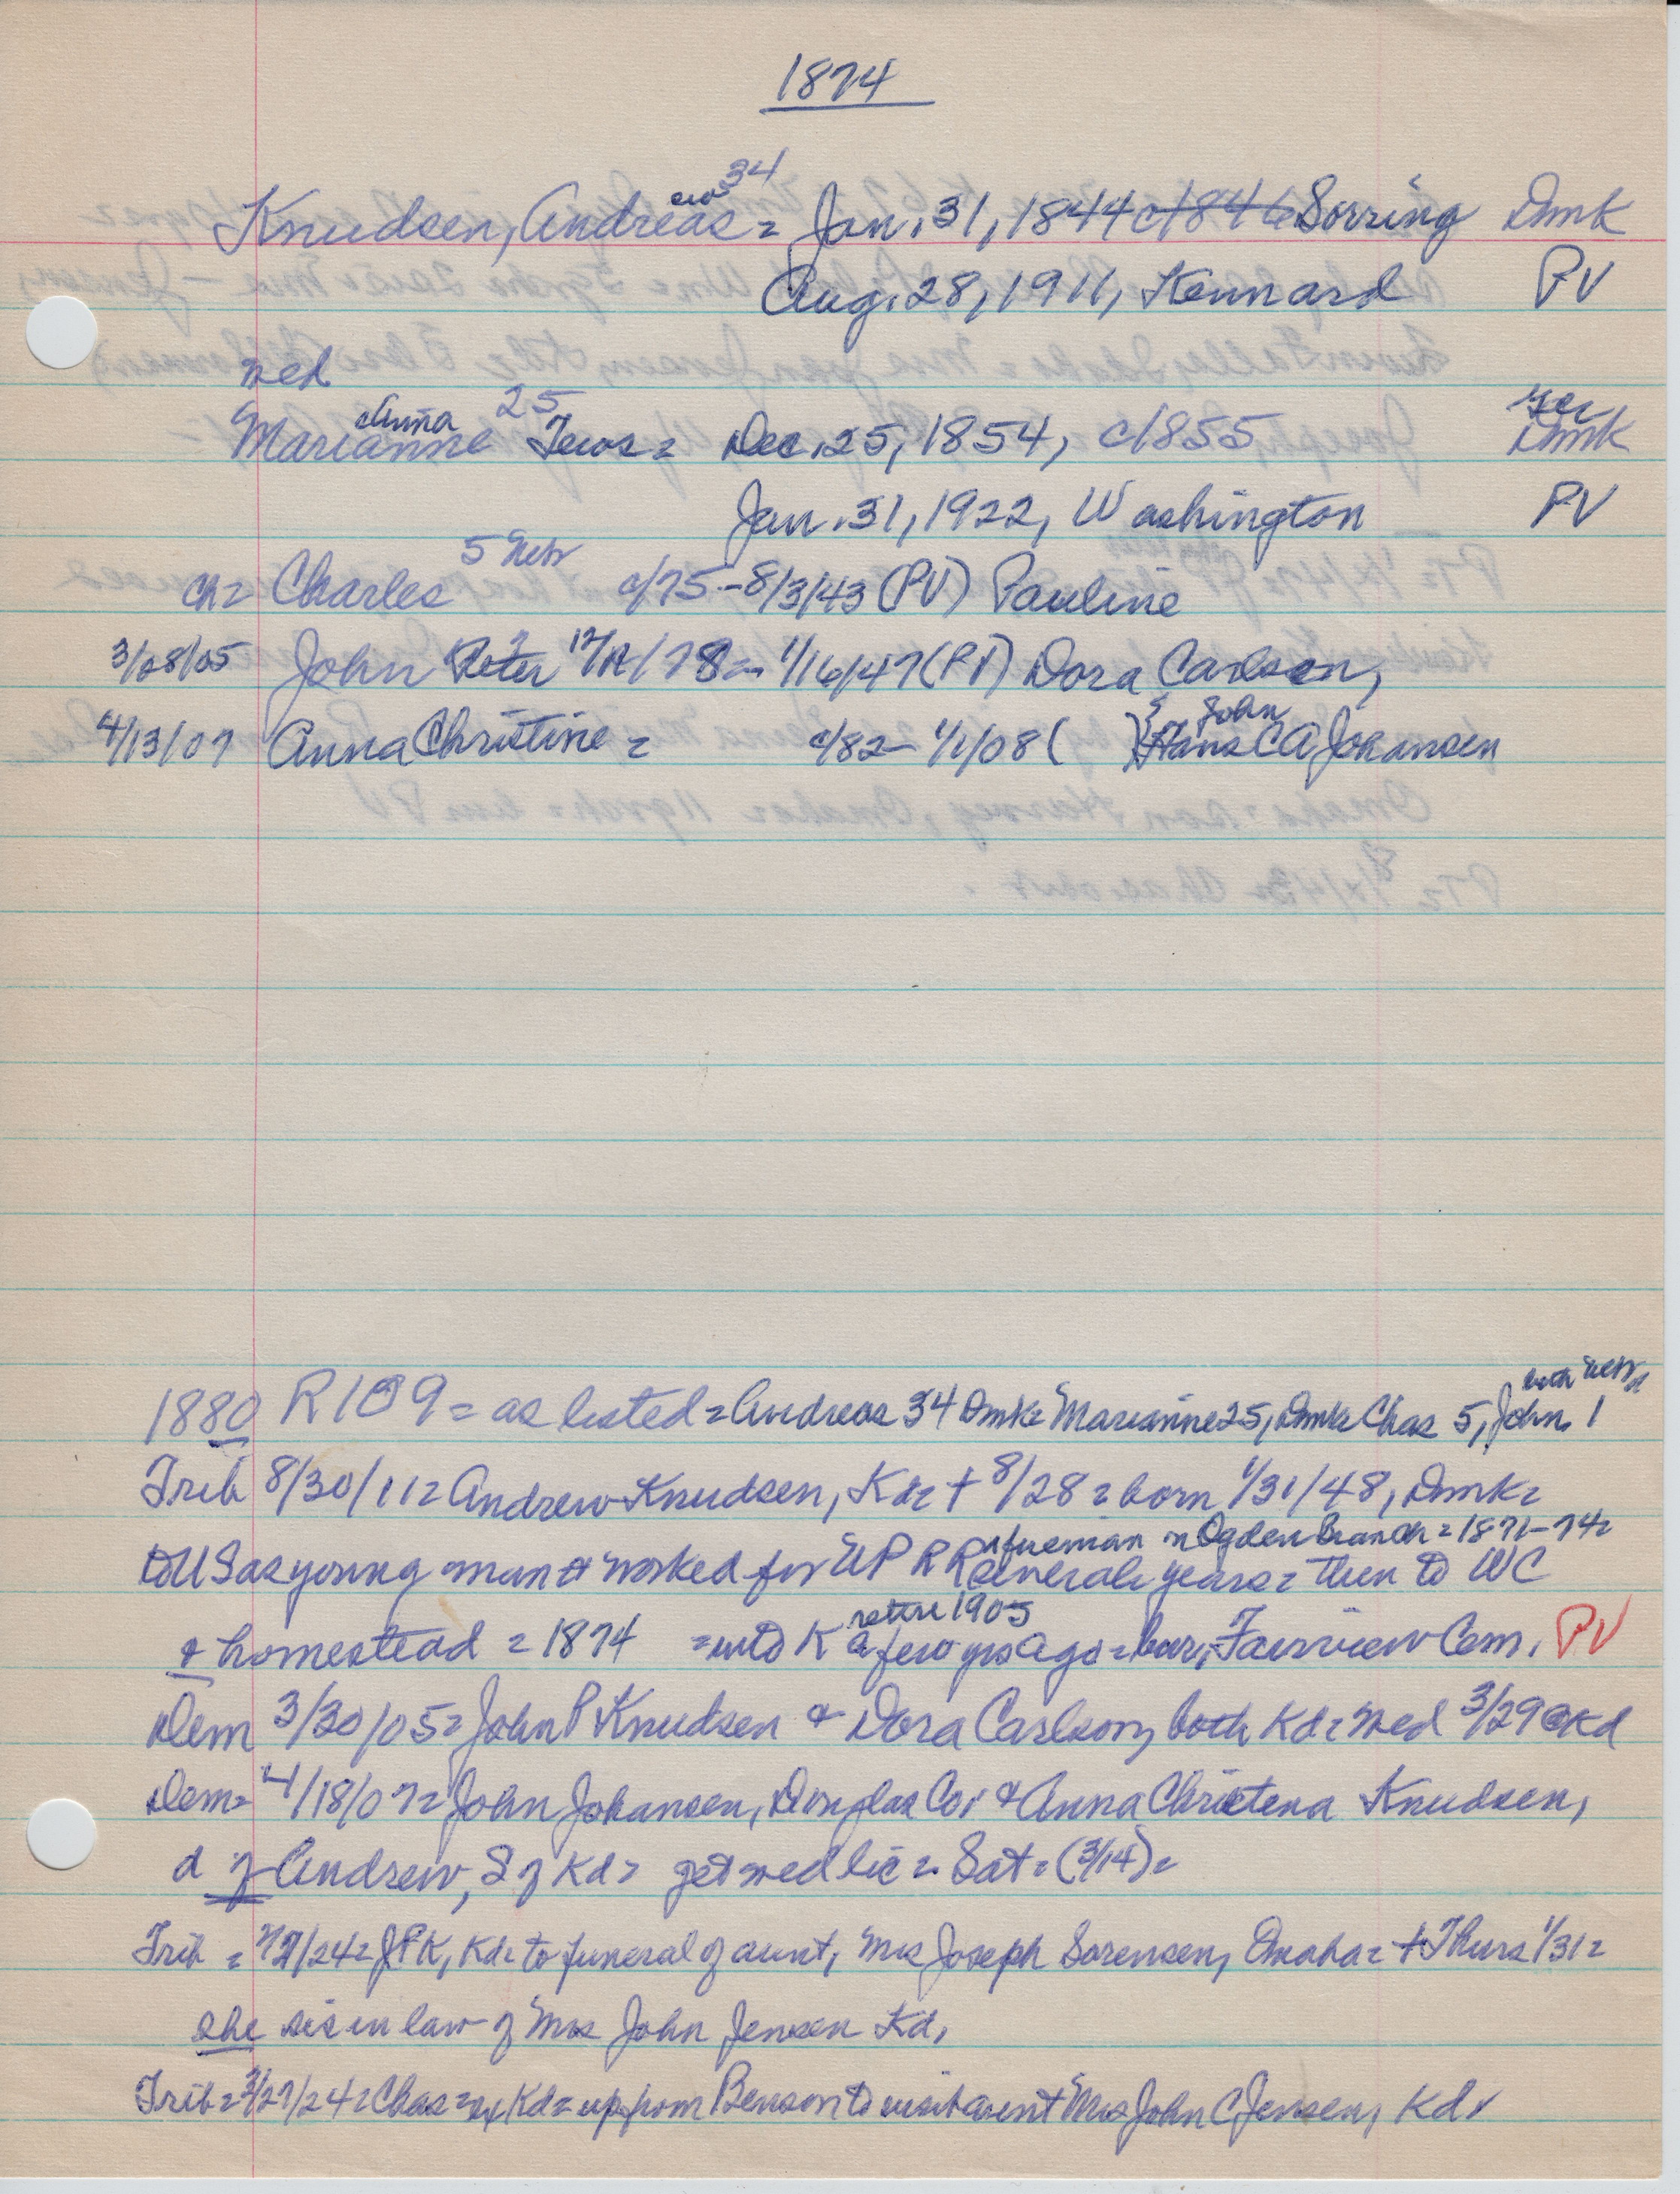 1874
34
Knudsen, Andreas = Jan. 31, 1844 c1846 Sorring Dmk
Aug. 28, 1911, Kennard PV
med
Anna 25
Marianne = Dec. 25, 1854, c1855 Dmk
Jan. 31, 1922, Washington PV
ch= Charles 5 Nebr c/75-8/3/43 (PV) Pauline
3/28/05 John Peter /78 = 1/16/47 (PV) Dora Carlson,
John
4/13/07 Anna Christine = c/82- 1/1/08 ( ) Hans C A Johansen
both Nebr
1880 R109 = as listed = Andreas 34 Dmk= Marianne 25, Dmk= Chas 5, John 1
Trib 8/30/11= Andrew Knudsen, Kd= + 8/28 = born 1/31/48, Dmk=
fireman on Ogden Branch = 1871-74=
to US as young man & worked for UP RR several years = then to WC
retire 1905
& homestead = 1874 = into K a few yrs ago = bur, Fairview Cem. PV
Dem 3/30/05= John P Knudsen & Dora Carlson, both Kd= med 3/29 @ Kd
Dem= 4/18/07= John Johansen, Douglas Co. & Anna Christena Knudsen,
d of Andrew, S of Kd= get med lic = Sat = (3/14)=
Trib = /24= JPK, Kd= to funeral of aunt, Mrs Joseph Sorensen, Omaha= + Thurs 1/31=
she sis in law of Mrs John Jensen Kd.
Trib = 3/27/24= Chas = of Kd = up from Benson to visit aunt Mrs John C Jensen, Kd.